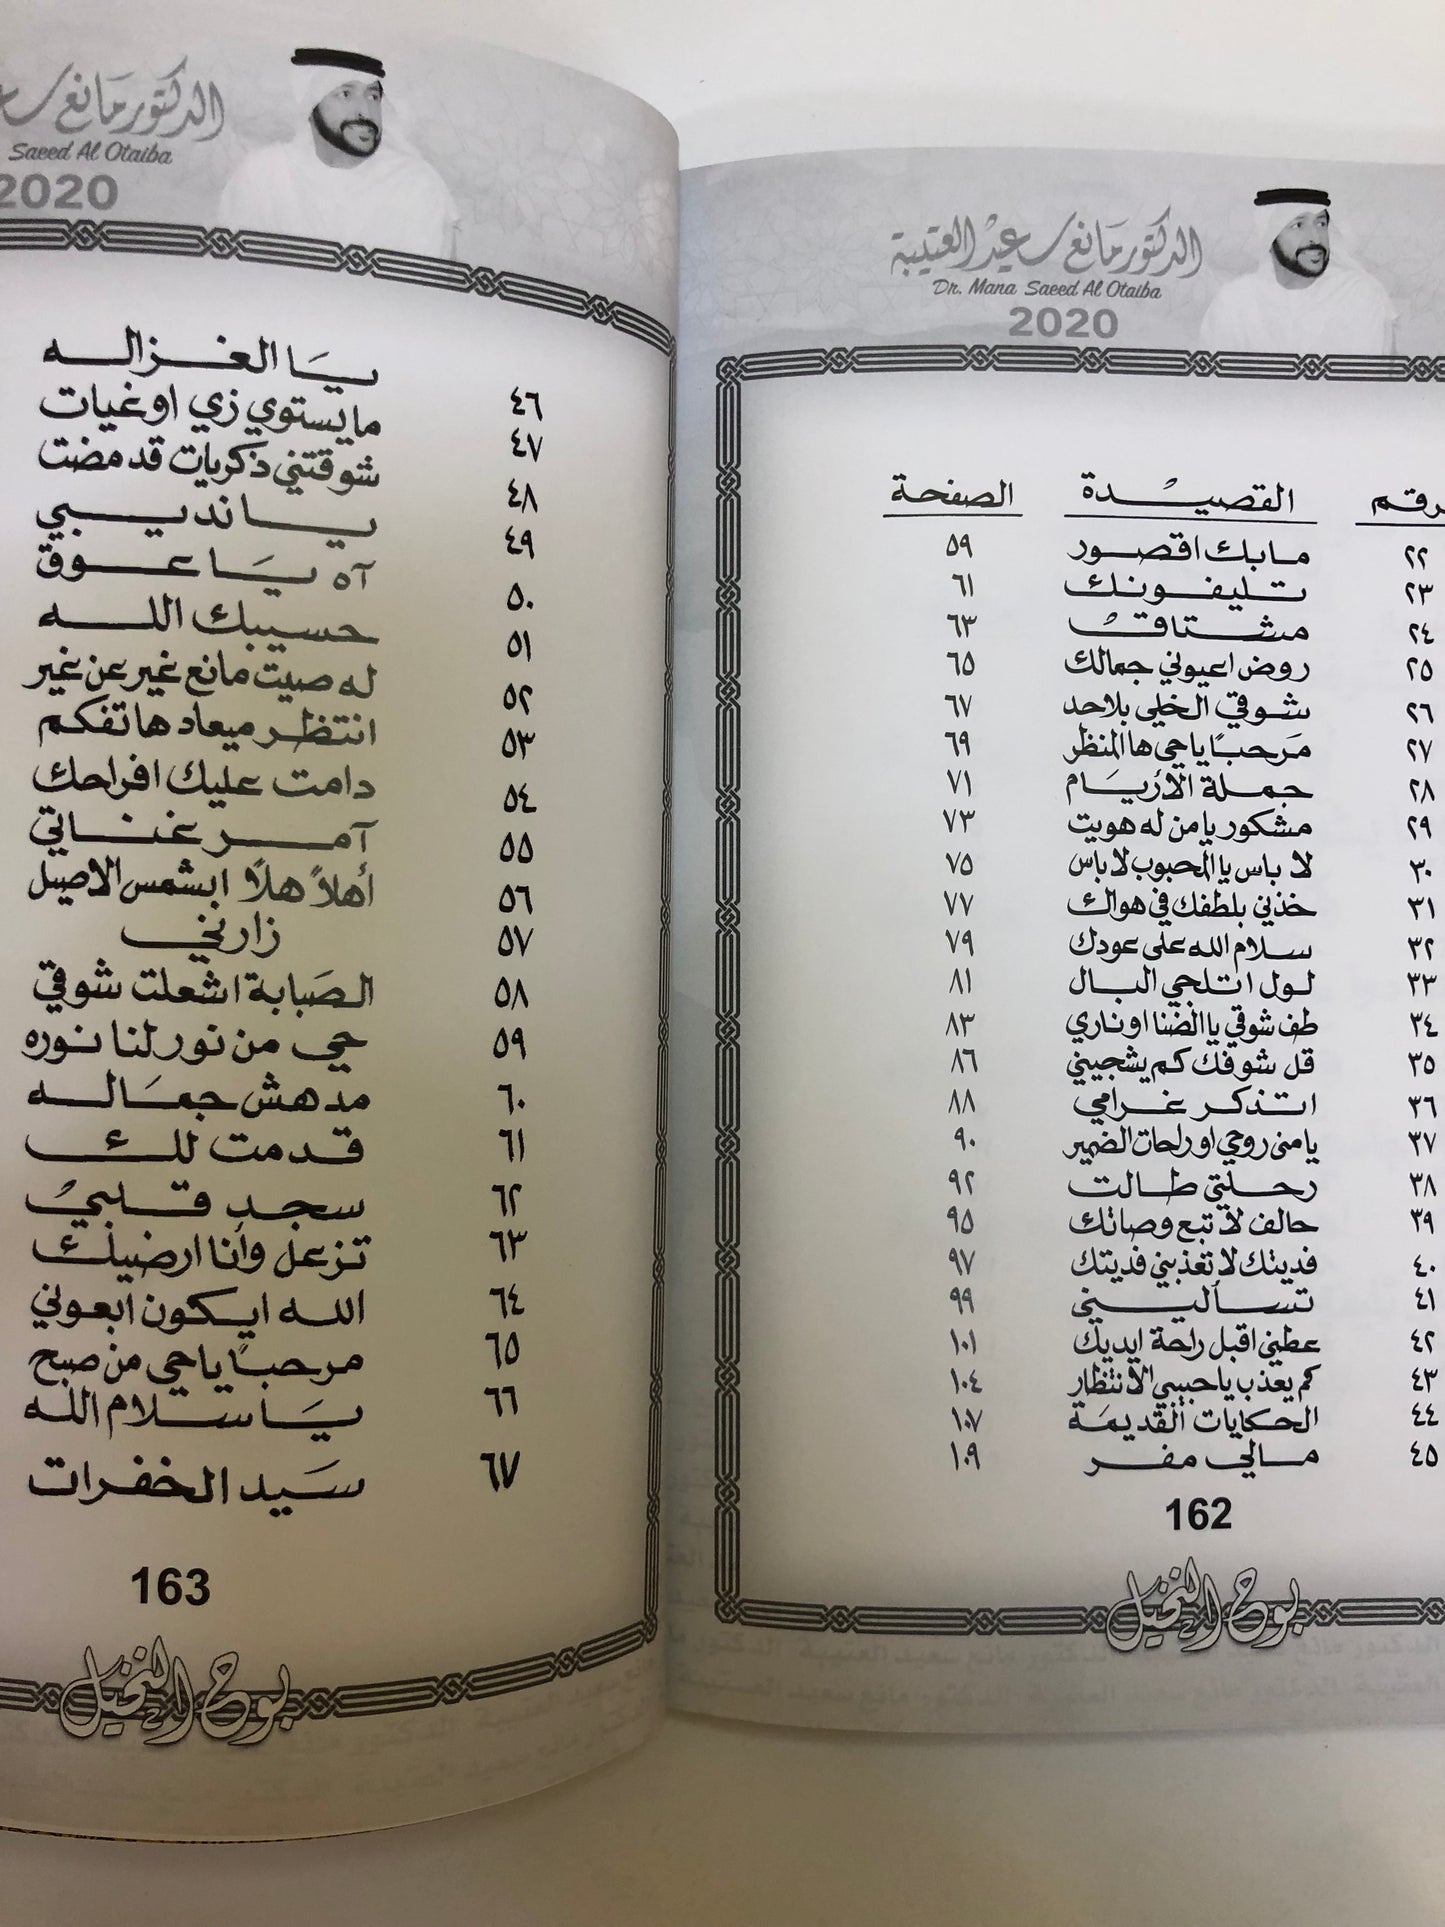 الدكتور مانع سعيد العتيبة
Dr. Mana Saeed Al Otaiba
2020
رقم القصيدة الصفحة
٢٢ مابك اقصور ٥٩
٢٣ تليفونك ٦١
٢٤ مشتاق ٦٣
٢٥ روض اعيوني جمالك ٦٥
٢٦ شوقي الخلي بلاحد ٦٧
٢٧ مرحبًا ياحي هالمنظر ٦٩
٢٨ جملة الأريام ٧١
٢٩ مشكور يامن له هويت ٧٣
٣٠ لا باس يا المحبوب لاباس ٧٥
٣١ خذني بلطفك في هواك ٧٧
٣٢ سلام الله على عودك ٧٩
٣٣ لول اتلجي البال ٨١
٣٤ طف شوقي يا الضنا او ناري ٨٣
٣٥ قل شوفك كم يشجيني ٨٦
٣٦ اتذكر غرامي ٨٨
٣٧ يامنى روحي او راحات الضمير ٩٠
٣٨ رحلتي طالت ٩٢
٣٩ حالف لا تبع وصاتك ٩٥
٤٠ فديتك لا تعذبني فديتك ٩٧
٤١ تسأليني ٩٩
٤٢ عطني اقبل راحة ايديك ١٠١
٤٣ كم يعذب ياحبيبي الانتظار ١٠٤
٤٤ الحكايات القديمة ١٠٧
٤٥ مالي مفر ١٠٩
162
بوح النخيل
الدكتور مانع
Saeed Al Otaiba
2020
يا الغزاله
٤٦ مايستوي زي اوغيات
٤٧ شوقتني ذكريات قد مضت
٤٨ يا نديبي
٤٩ آه يا عوق
٥٠ حسيبك الله
٥١ له صيت مانع غير عن غير
٥٢ انتظر ميعاد هاتفكم
٥٣ دامت عليك افراحك
٥٤ آمر غناتي
٥٥ أهلاً هلا ابشمس الاصيل
٥٦ زارني
٥٧ الصبابة اشعلت شوقي
٥٨ حي من نور لنا نوره
٥٩ مدهش جماله
٦٠ قدمت لك
٦١ سجد قلبي
٦٢ تزعل وأنا ارضيك
٦٣ الله ايكون ابعوني
٦٤ مرحبًا ياحي من صبح
٦٥ يا سلام الله
٦٦ سيد الخفرات
٦٧
163
بوح النخيل